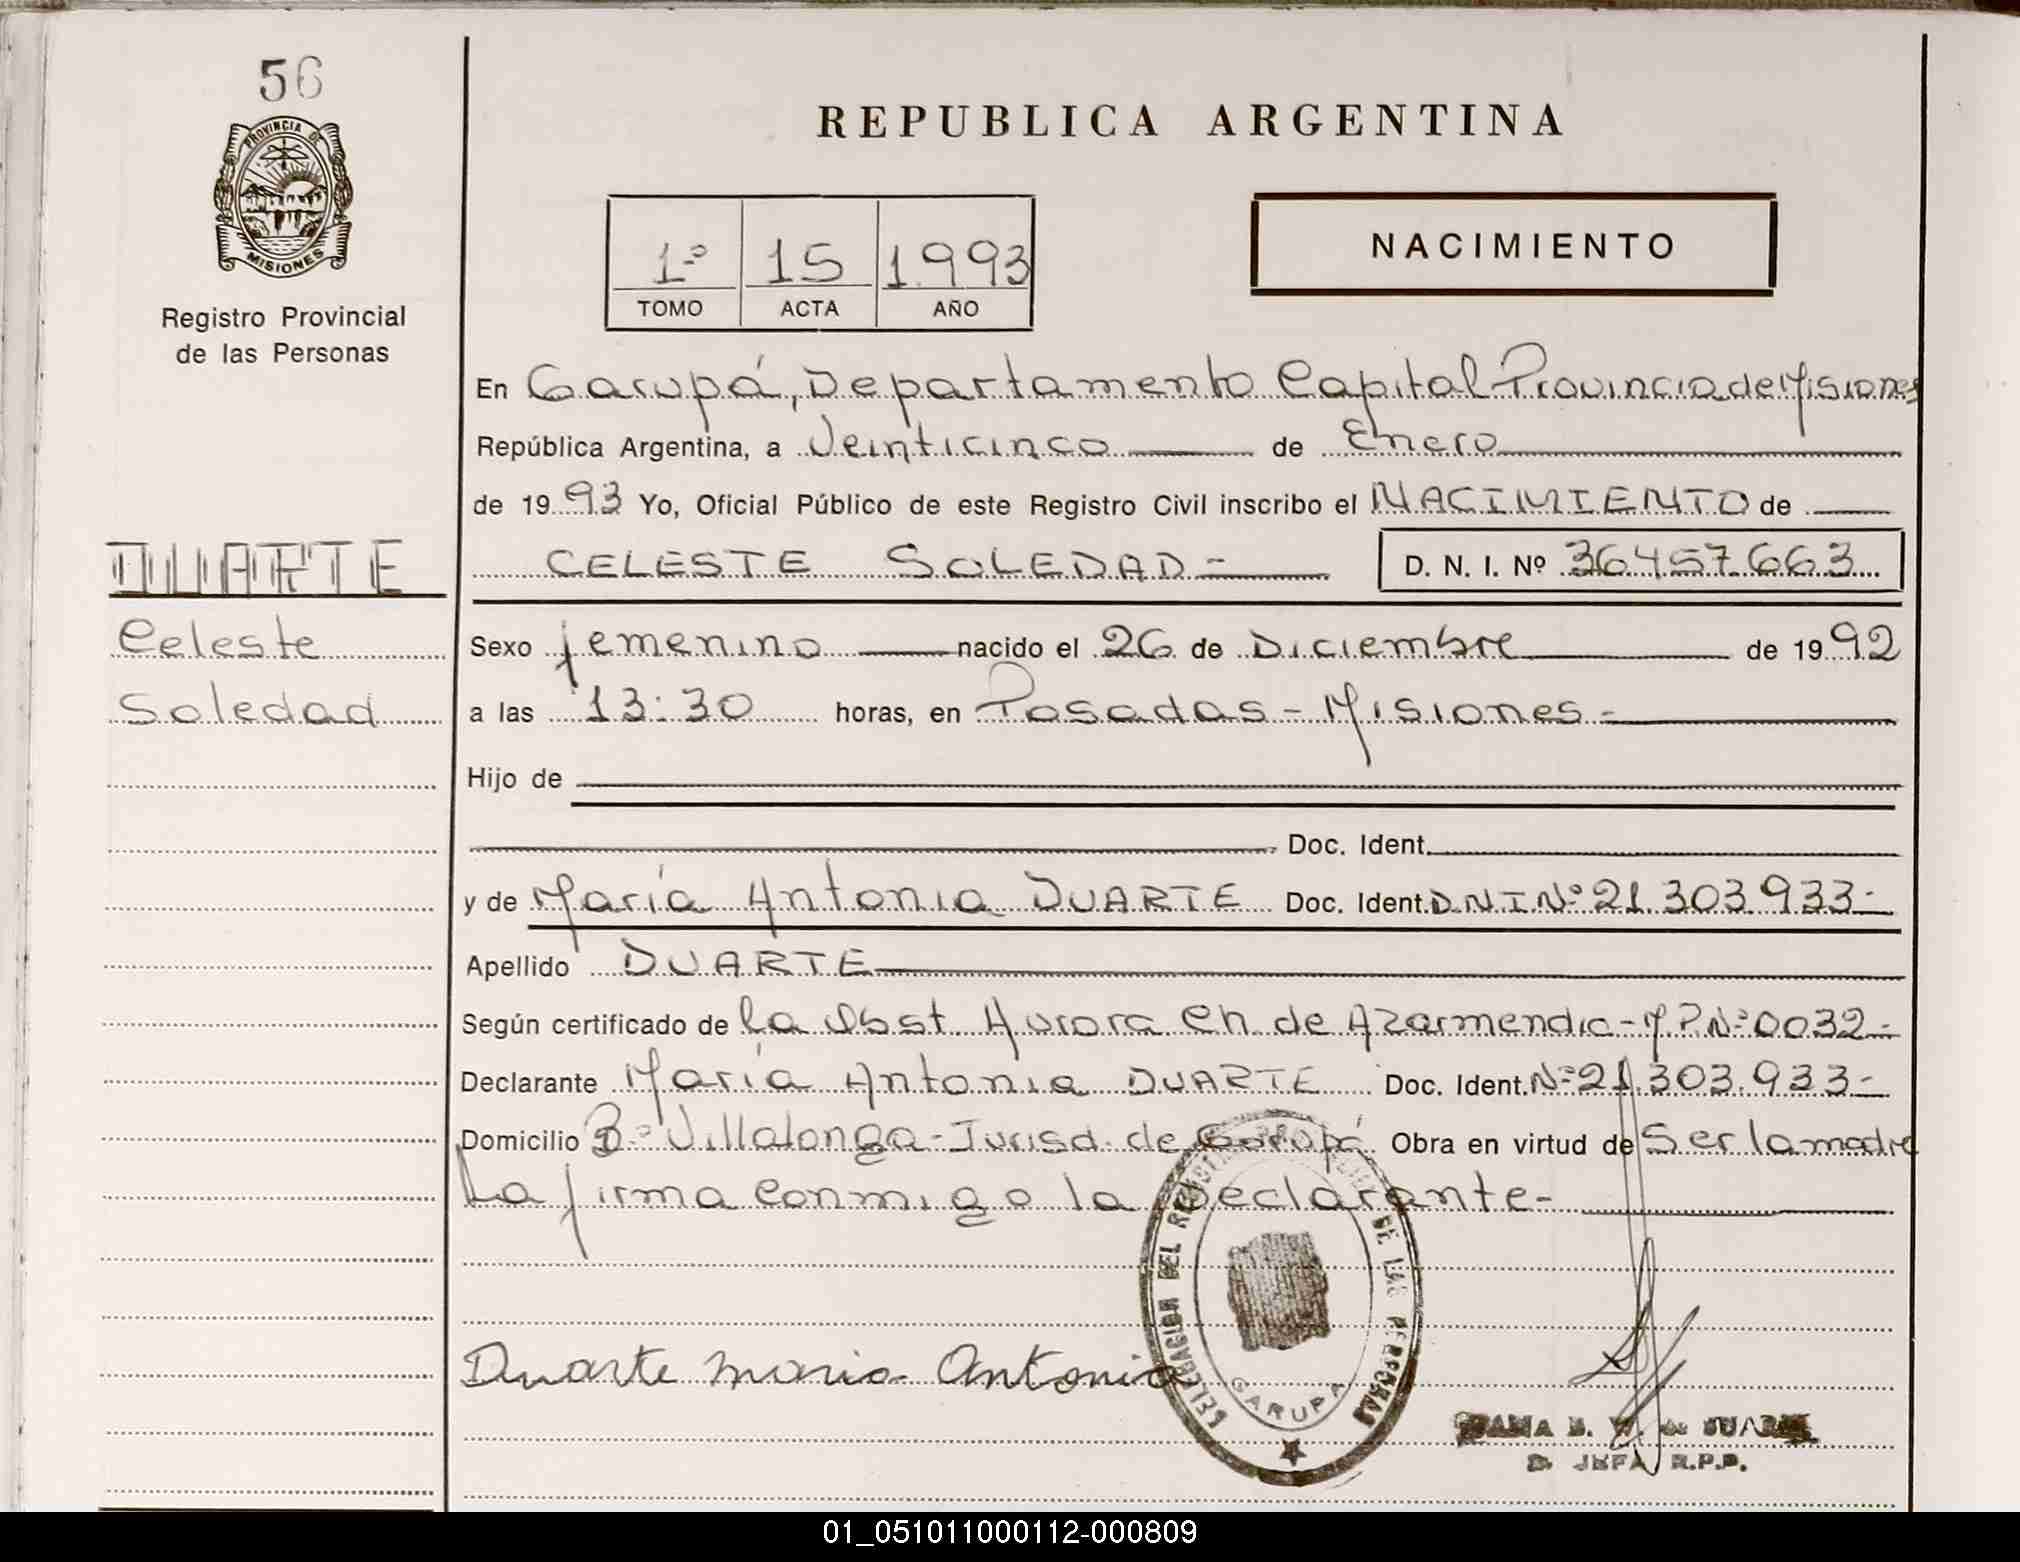 56
PROVINCIA DE
MISIONES
Registro Provincial
de las Personas
REPUBLICA ARGENTINA
1º 15 1993
TOMO ACTA AÑO
NACIMIENTO
En Garupá, Departamento Capital Provincia de Misiones
República Argentina, a Veinticinco de Enero
de 1993 Yo, Oficial Público de este Registro Civil inscribo el NACIMIENTO de
DUARTE
CELESTE SOLEDAD - D. N. I. Nº 36457.663
Celeste
Sexo femenino nacido el 26 de Diciembre de 1992
Soledad
a las 13:30 horas, en Posadas - Misiones -
Hijo de
Doc. Ident.
y de María Antonia DUARTE Doc. Ident. DNI Nº 21.303.933-
Apellido DUARTE
Según certificado de la Obst Aurora Ch de Azarmendia - M.P.Nº 0032-
Declarante María Antonia DUARTE Doc. Ident. Nº 21.303.933-
Domicilio Bº Villalonga - Jurisd. de Garupá Obra en virtud de Ser la madre
La firma conmigo la Declarante-
Duarte maria Antonia
DELEGACION DEL REGISTRO DE LAS PERSONAS
GARUPA
JEFA R.P.P.
01_051011000112-000809